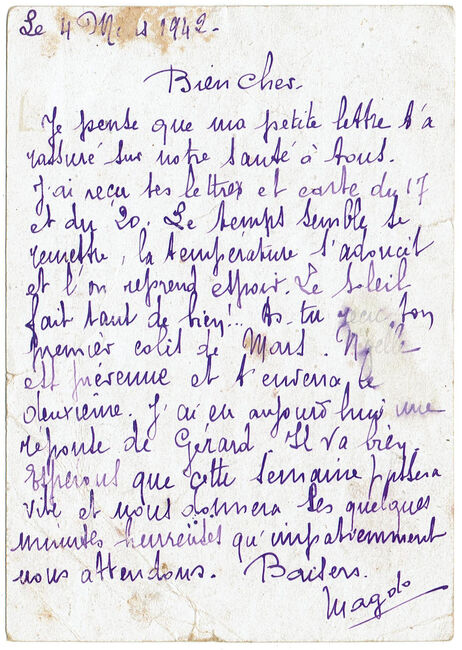 Le 4 Mars 1942.
Bien cher.
Je pense que ma petite lettre t'a
rassuré sur notre santé à tous.
J'ai reçu tes lettres et carte du 17
et du 20. Le temps semble se
remettre, la température s'adoucit
et l'on reprend espoir. Le soleil
fait tant de bien!.. As-tu reçu ton
premier colis de Mars.
est prévenue et t'enverra le
deuxième. J'ai eu aujourd'hui une
réponse de Gérard. Il va bien.
Espérons que cette semaine passera
vite et nous donnera les quelques
minutes heureuses qu'impatiemment
nous attendons. Baisers.
Magdo